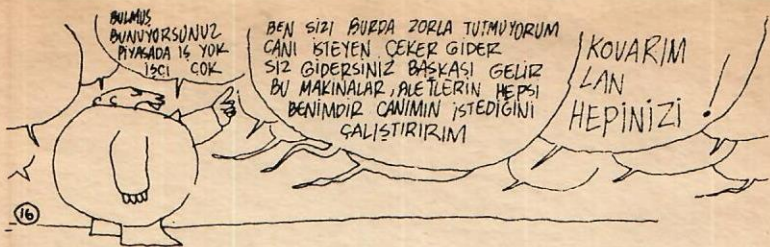 BULMUŞ
BUNUYORSUNUZ
PİYASADA İŞ YOK
İŞÇİ ÇOK
BEN SİZİ BURDA ZORLA TUTMUYORUM
CANI İSTEYEN ÇEKER GİDER
SİZ GİDERSİNİZ BAŞKASI GELİR
BU MAKINALAR, ALETLERİN HEPSİ
BENİMDİR CANIMIN İSTEDİĞİNİ
ÇALIŞTIRIRIM
KOVARIM
LAN
HEPİNİZİ !
16